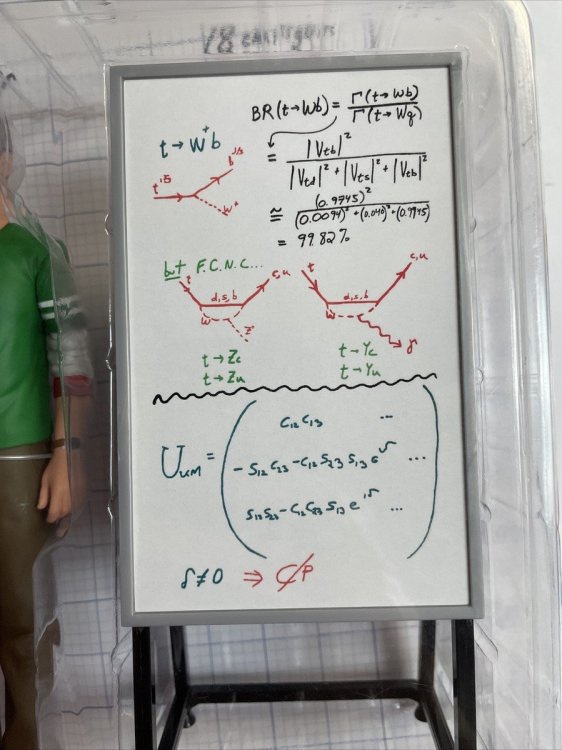 BR(t→Wb) = Γ(t→Wb) / Γ(t→Wq)
t→W⁺b
= |Vtb|² / |Vtd|² + |Vts|² + |Vtb|²
≅ (0.9745)² / (0.0094)² + (0.040)² + (0.9945)
= 99.82%
t
b
W⁺
but F.C.N.C...
t
d,s,b
c,u
W
Z°
t
d,s,b
c,u
W
γ
t→Zc
t→Zu
t→γc
t→γu
C₁₂C₁₃ ...
= -S₁₂C₂₃-C₁₂S₂₃S₁₃e^iδ ...
S₁₂S₂₃-C₁₂C₂₃S₁₃e^iδ ...
δ≠0 ⇒ CP